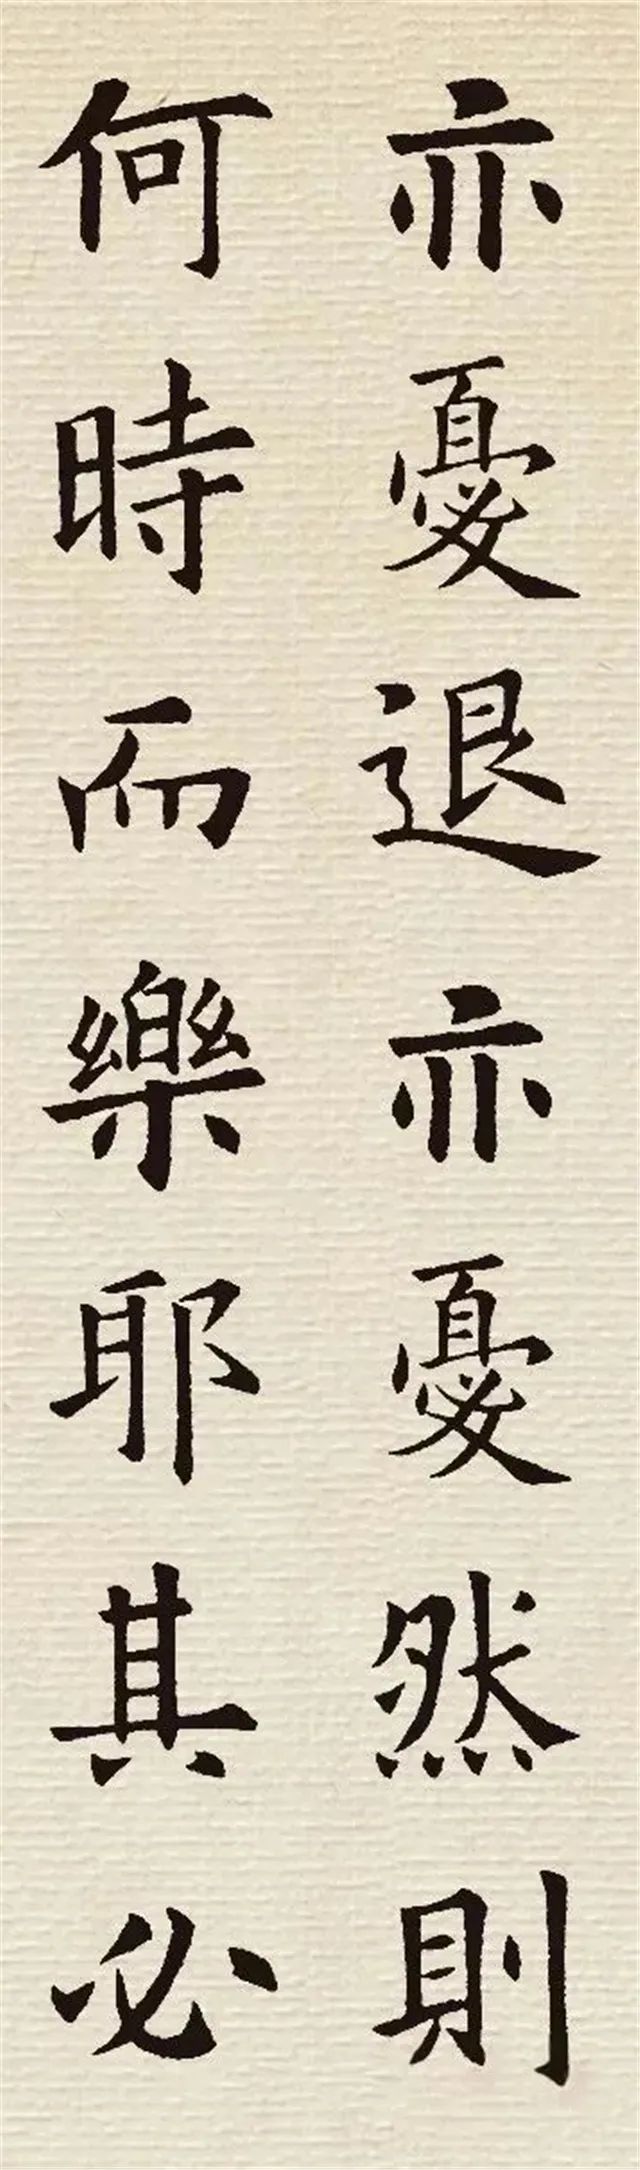 亦憂退亦憂然則
何時而樂耶其必